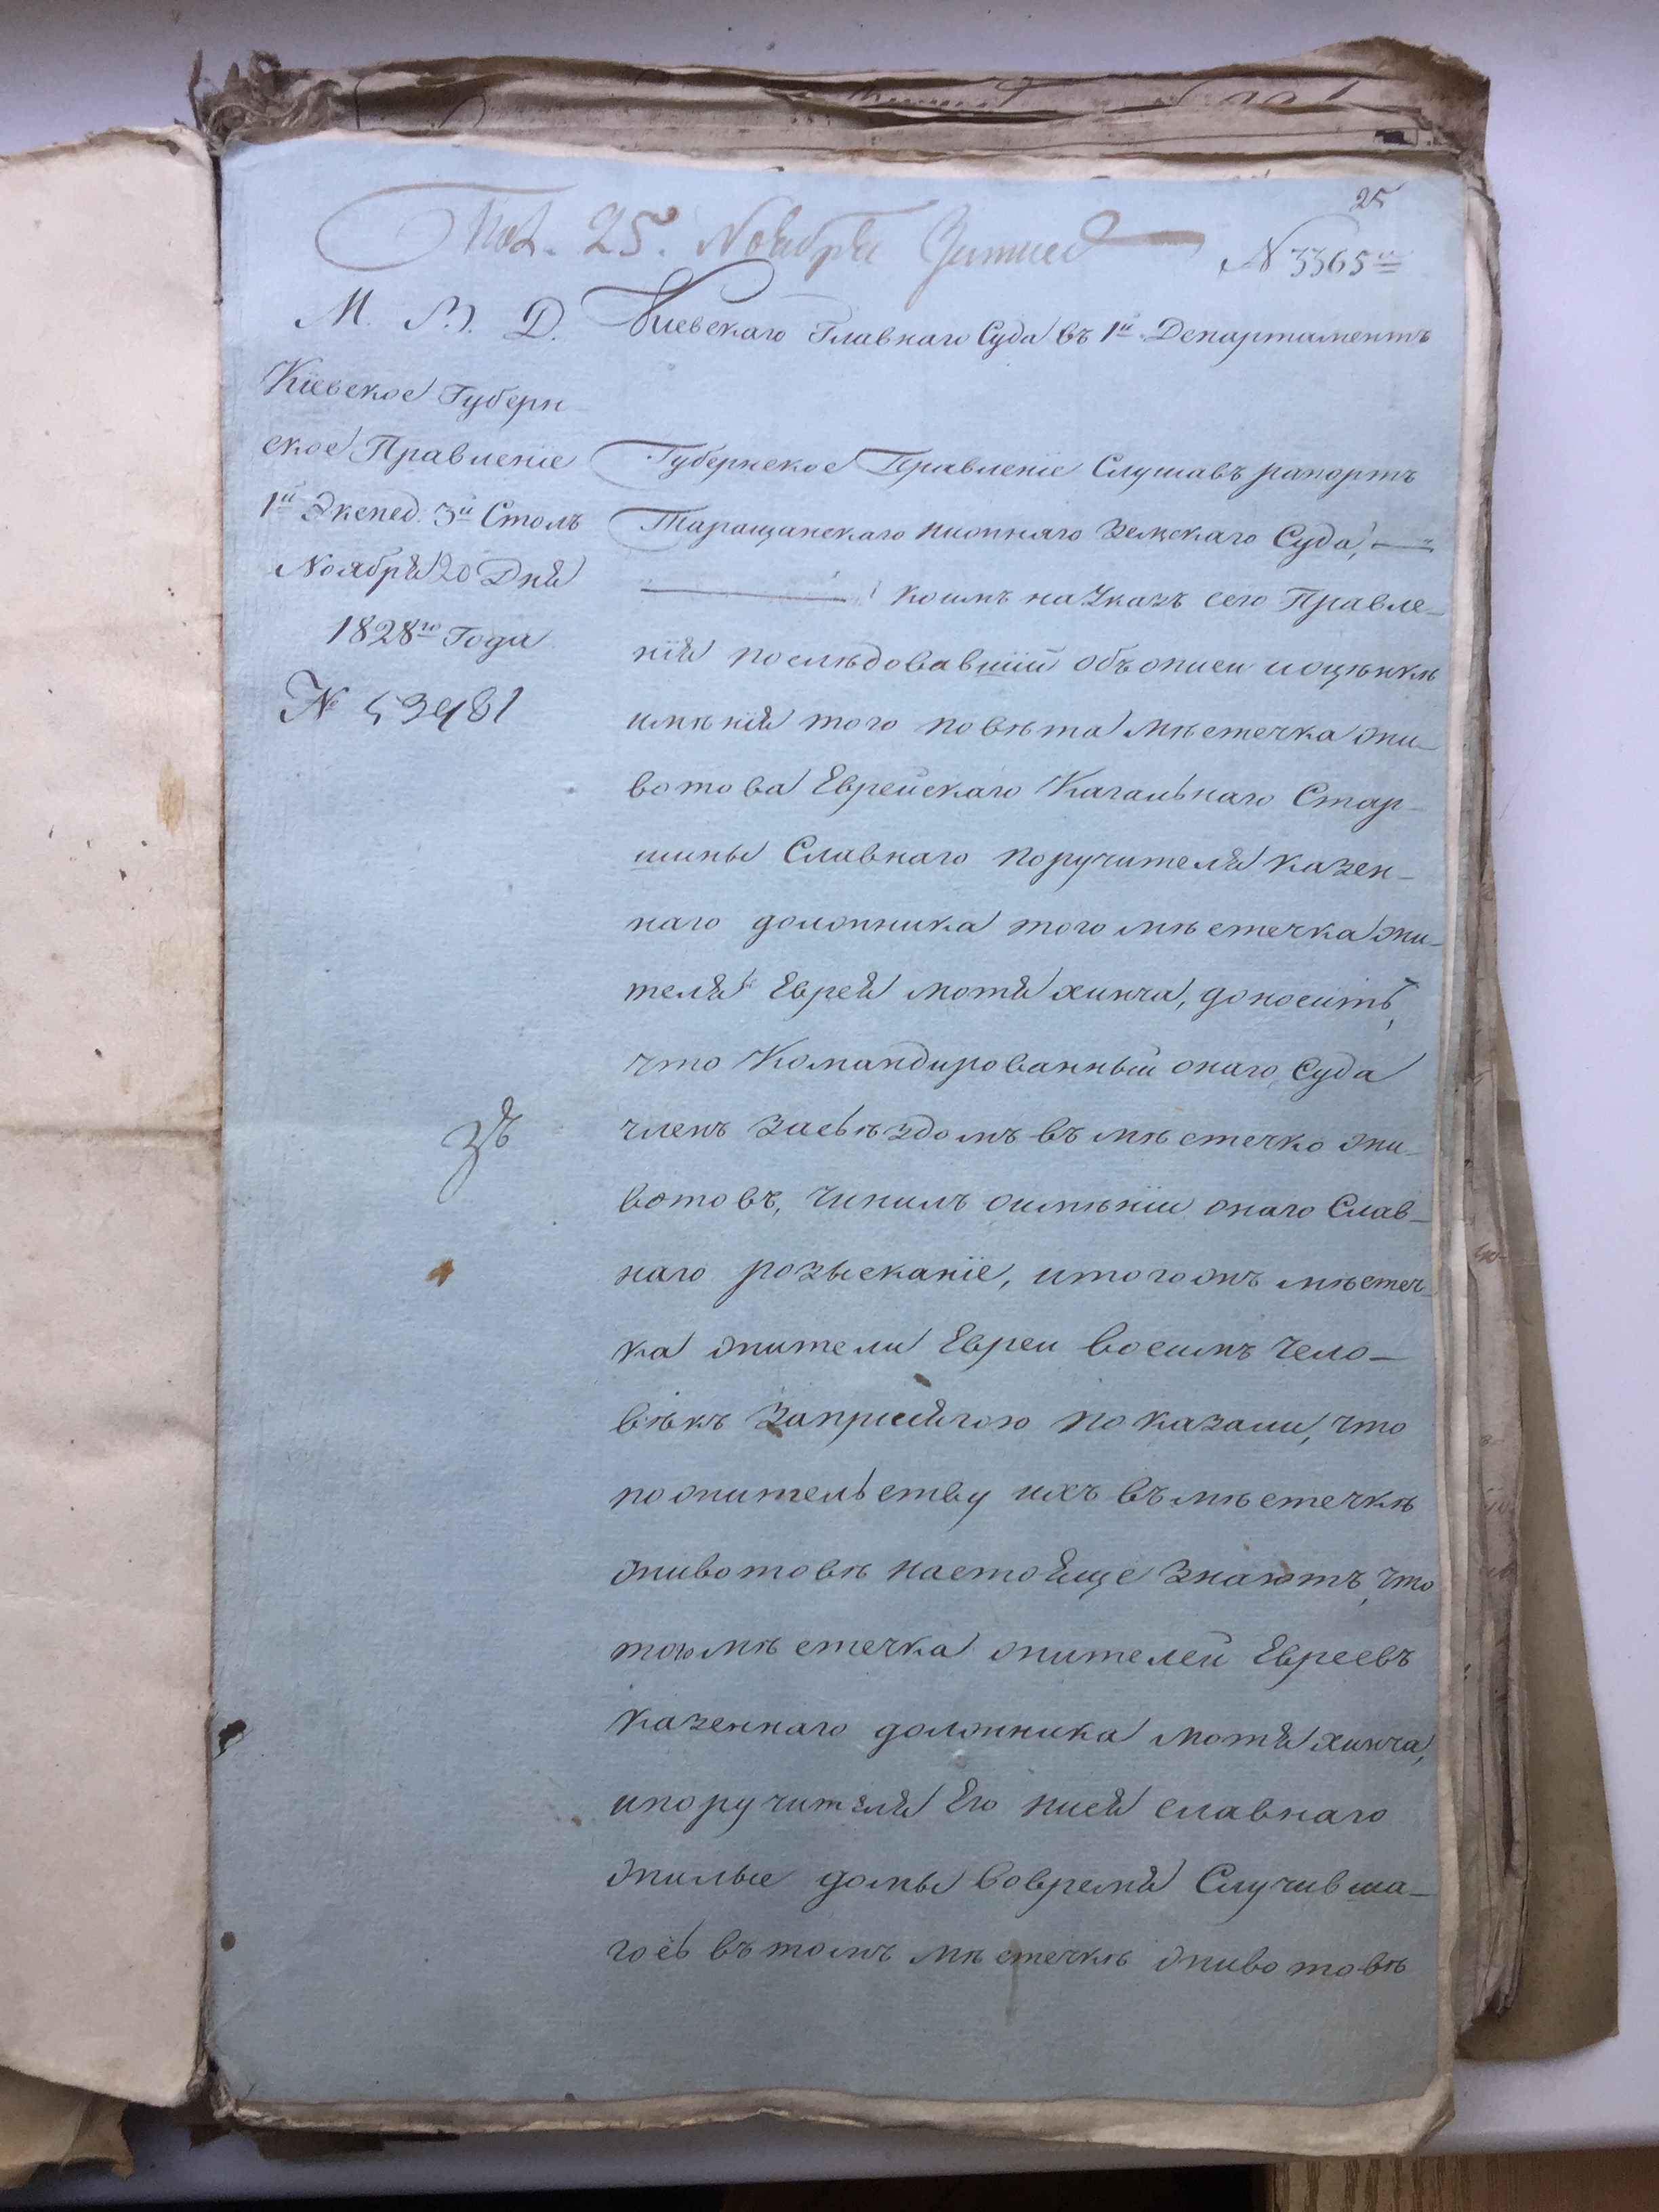 25
Пол. 25. Ноября
№ 3365
М. В. Д.
Кіевское Губерн
ское Правленіе
1й Экспед. 3й Столъ
Ноября 20 Дня
1828го Года
№ 53981
Кіевскаго Главнаго Суда въ 1й Департаментъ
Губернское Правленіе Слушавъ рапортъ
Таращанскаго нижняго Земскаго Суда,
коимъ на Указъ сего Правле-
нія последовавшій объ описи и оцѣнкѣ
имѣнія того повѣта мѣстечка жи-
вотова Еврейскаго Кагальнаго Стар-
шины Славнаго поручителя казен-
наго должника того мѣстечка жи-
теля Еврея мотя хинча, доноситъ,
что Командированный онаго Суда
членъ заѣвъздомъ въ мѣстечко жи-
вотовъ, Чинилъ о имѣніи онаго Слав-
наго розысканіе, и того жъ мѣстеч-
ка жители Евреи восимъ чело-
вѣкъ за присягою показали, что
по жительству ихъ въ мѣстечкѣ
животовѣ настояще знаютъ, что
того мѣстечка жителей Евреевъ
казеннаго должника мотя хинча,
и поручителя Его нися славнаго
жилые домы вовремя Случивша-
гося въ томъ мѣстечкѣ животовѣ